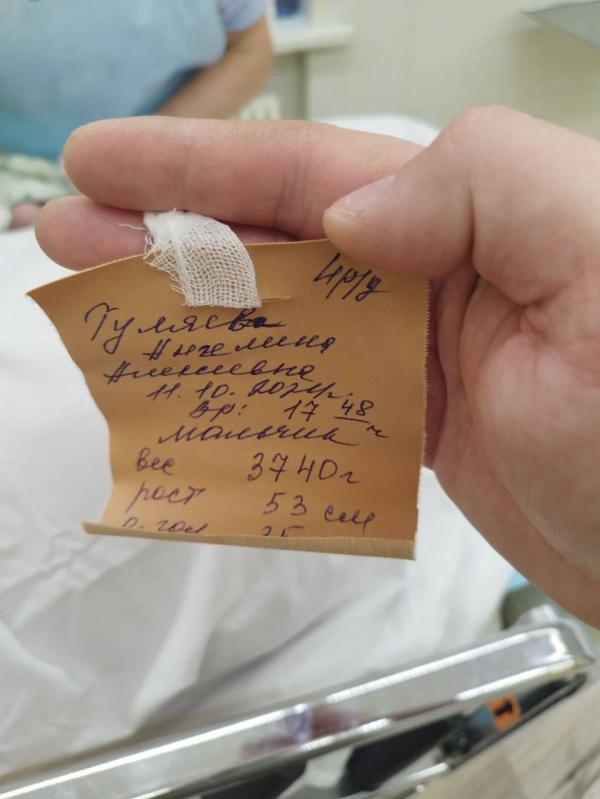 4р/д
Гуляева
Ангелина
11.10.2024г.
Вр: 17 48 ч
мальчик
вес 3740г
рост 53 см
о. гол 35